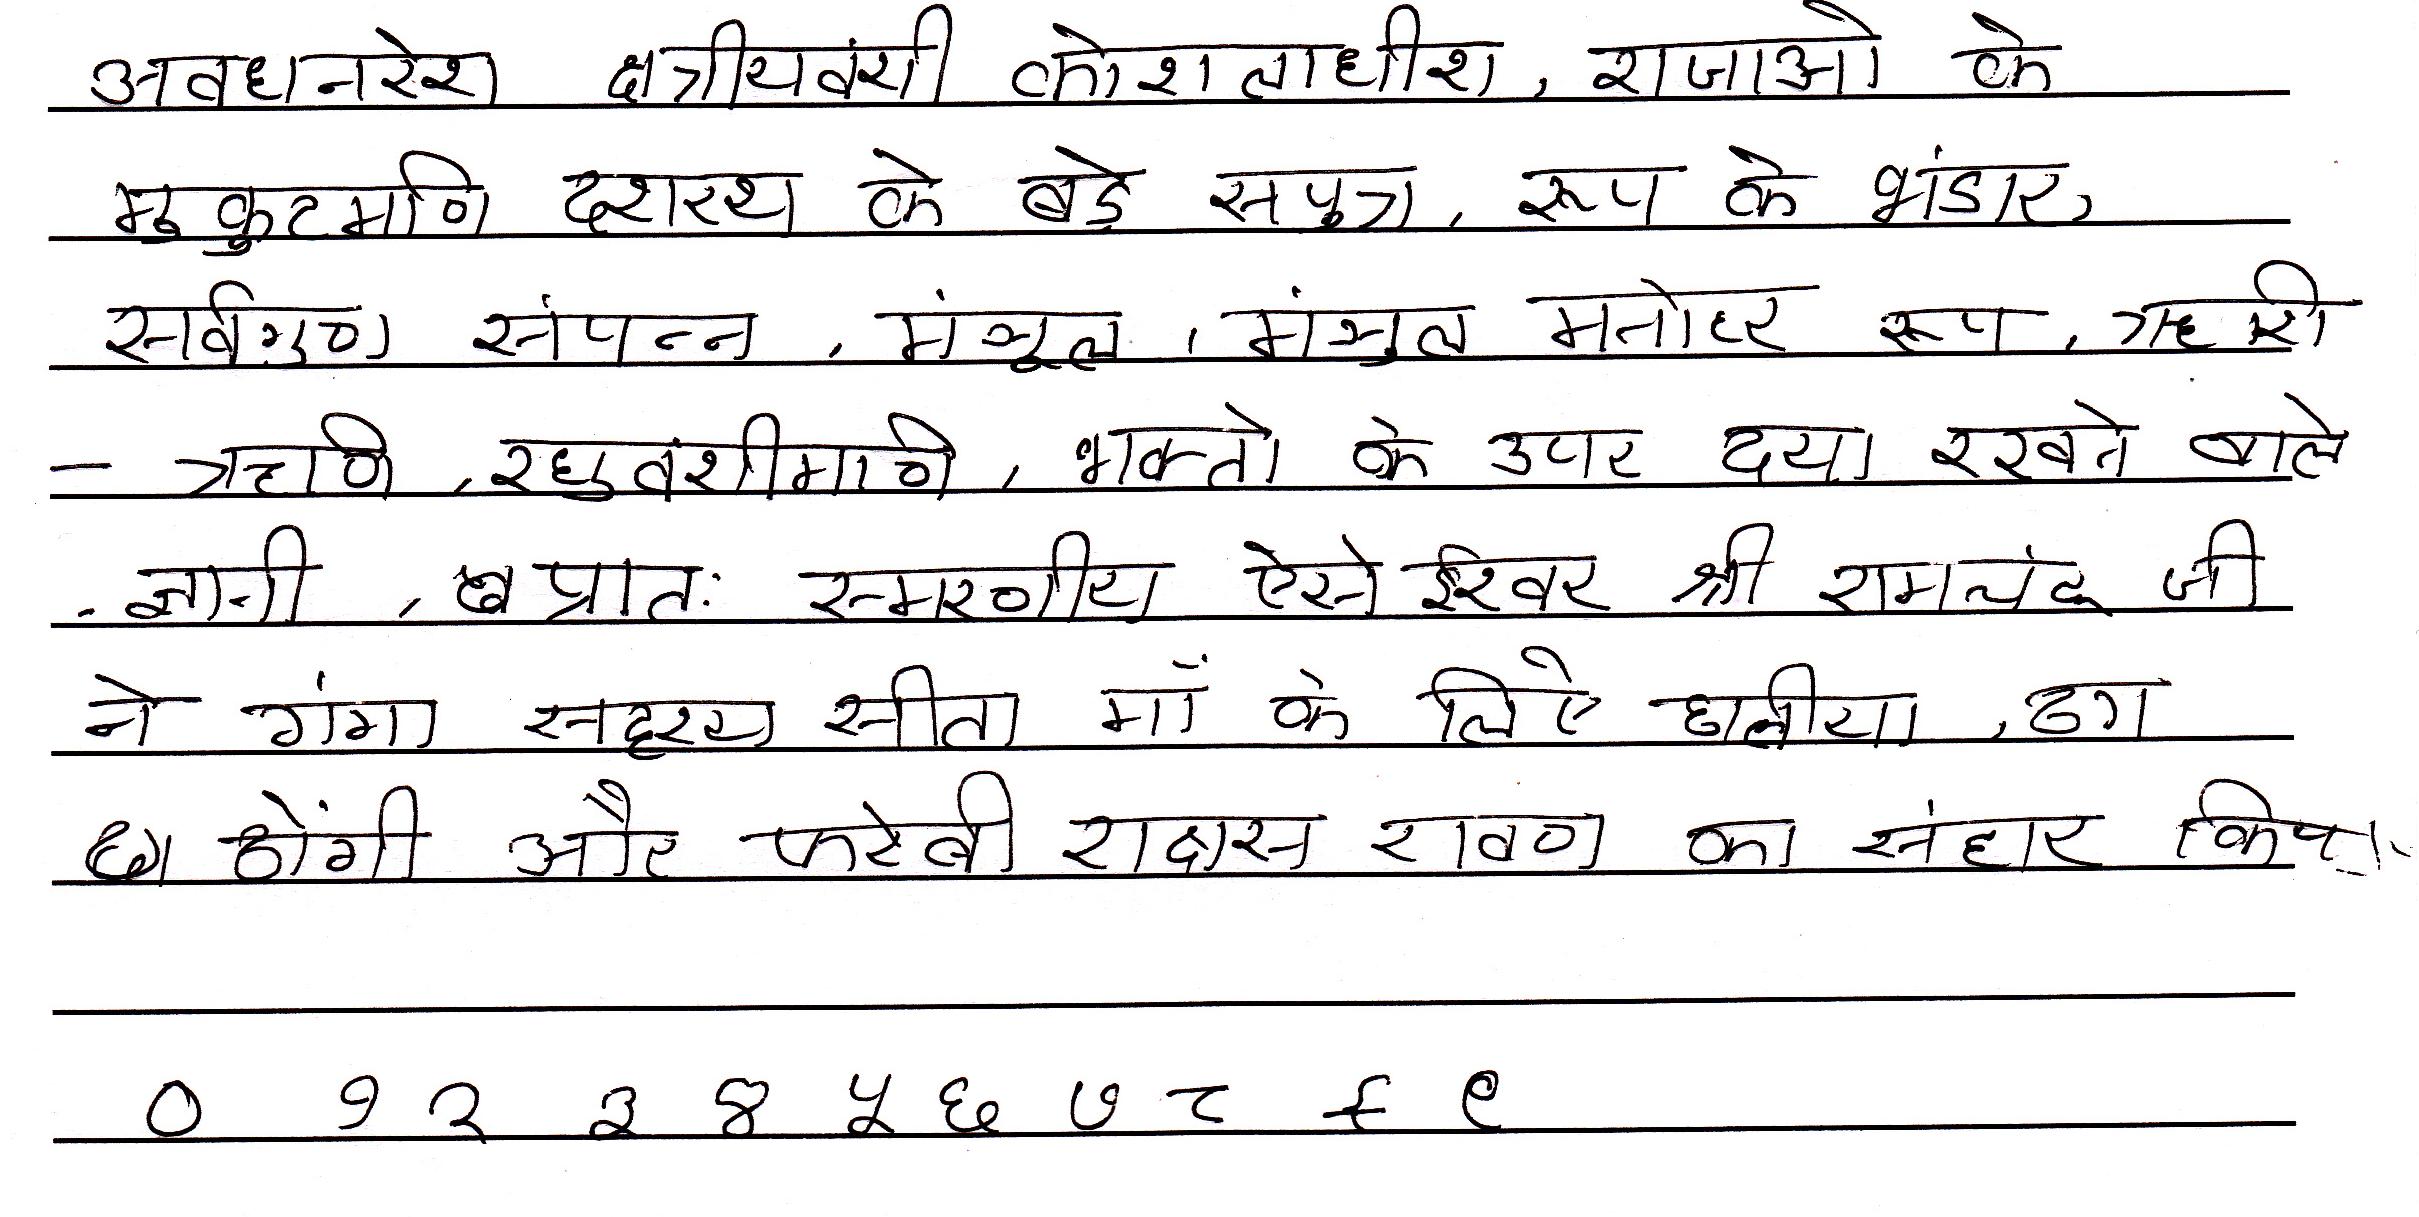 अवधनरेश क्षत्रीयवंशी कोशलाधीश, राजाओ के
मुकुटमणि दशरथ के बड़े सपुत्र, रूप के भंडार,
सर्वगुण संपन्न, मंञूल, मंञुल मनोहर रूप,
रघुवंशीमणि, भक्तो के उपर दया रखने वाले
ज्ञानी, प्रातः स्मरणीय ऐसे ईश्वर श्री रामचंद्र जी
ने गंगा सदृश्य सीता माँ के लिऐ छलीया, ठग
ढोंगी और फरेबी राक्षस रावण का संहार किया
० १ २ ३ ४ ५ ६ ७ ८ ९